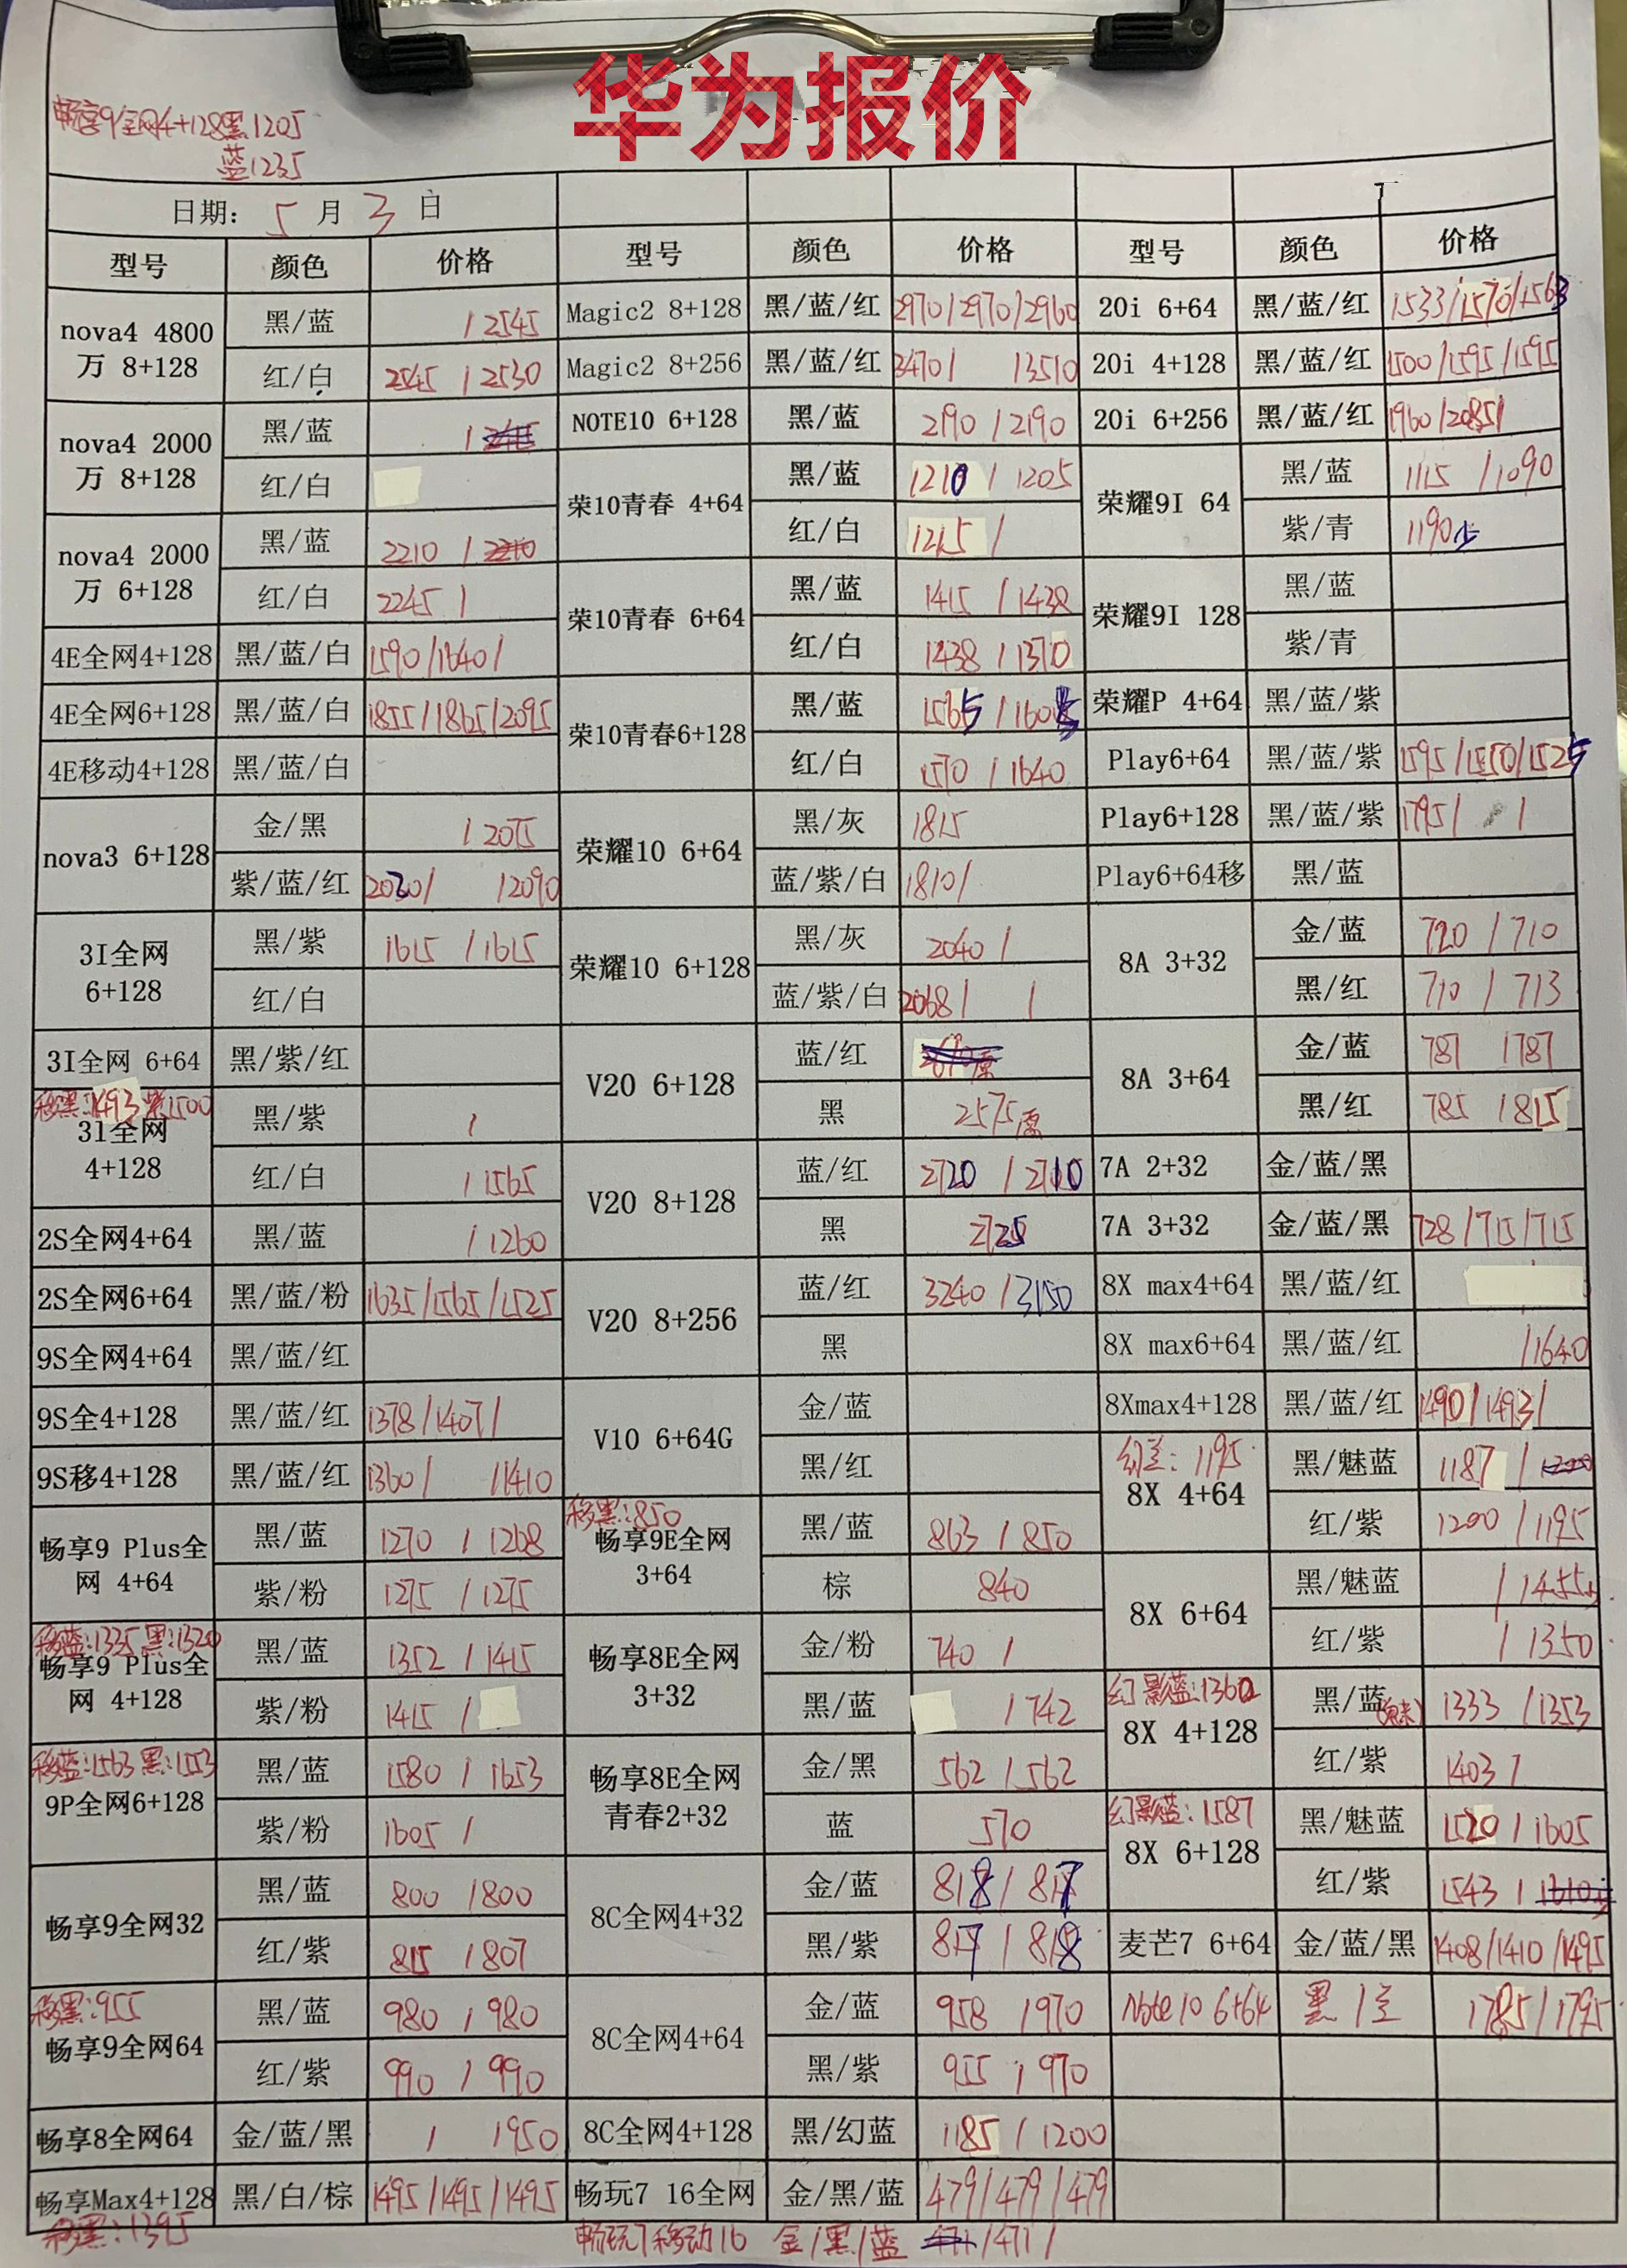 华为报价
畅享9全网4+128黑1205
蓝1235
日期: 5 月 3 日
型号 颜色 价格 型号 颜色 价格 型号 颜色 价格
nova4 4800万 8+128 黑/蓝 / 2545 Magic2 8+128 黑/蓝/红 2970/2970/2960 20i 6+64 黑/蓝/红 1533/1570/1563
红/白 2545 / 2530 Magic2 8+256 黑/蓝/红 3470/ /3510 20i 4+128 黑/蓝/红 1500/1595/1595
nova4 2000万 8+128 黑/蓝 / NOTE10 6+128 黑/蓝 2190 / 2190 20i 6+256 黑/蓝/红 1960/2085/
红/白 荣10青春 4+64 黑/蓝 1210 / 1205 荣耀9I 64 黑/蓝 1115 / 1090
nova4 2000万 6+128 黑/蓝 2210 / 2210 红/白 1215 / 紫/青 1190
红/白 2245 / 荣10青春 6+64 黑/蓝 1415 / 1438 荣耀9I 128 黑/蓝
4E全网4+128 黑/蓝/白 1590/1640/ 红/白 1438 / 1370 紫/青
4E全网6+128 黑/蓝/白 1855/1865/2095 荣10青春6+128 黑/蓝 1565 / 1605 荣耀P 4+64 黑/蓝/紫
4E移动4+128 黑/蓝/白 红/白 1570 / 1640 Play6+64 黑/蓝/紫 1595/1550/1525
nova3 6+128 金/黑 / 2075 荣耀10 6+64 黑/灰 1815 Play6+128 黑/蓝/紫 1795/ /
紫/蓝/红 2030/ /2090 蓝/紫/白 1810/ Play6+64移 黑/蓝
3I全网 6+128 黑/紫 1615 / 1615 荣耀10 6+128 黑/灰 2040 / 8A 3+32 金/蓝 720 / 710
红/白 蓝/紫/白 2068/ / 黑/红 710 / 713
3I全网 6+64 黑/紫/红 V20 6+128 蓝/红 8A 3+64 金/蓝 787 / 787
移黑:1493 紫1500
3I全网 4+128 黑/紫 / 黑 2575原 黑/红 785 / 815
红/白 / 1565 V20 8+128 蓝/红 2720 / 2710 7A 2+32 金/蓝/黑
2S全网4+64 黑/蓝 / 1260 黑 2725 7A 3+32 金/蓝/黑 728/715/715
2S全网6+64 黑/蓝/粉 1635/1565/1525 V20 8+256 蓝/红 3240 / 3150 8X max4+64 黑/蓝/红
9S全网4+64 黑/蓝/红 黑 8X max6+64 黑/蓝/红 /1640
9S全4+128 黑/蓝/红 1378/1407/ V10 6+64G 金/蓝 8Xmax4+128 黑/蓝/红 1490/1493/
9S移4+128 黑/蓝/红 1360/ /1410 黑/红 幻兰:1195 8X 4+64 黑/魅蓝 1187 / 1200
畅享9 Plus全网 4+64 黑/蓝 1270 / 1268 移黑:850 畅享9E全网 3+64 黑/蓝 863 / 850 红/紫 1200 / 1195
紫/粉 1275 / 1275 棕 840 8X 6+64 黑/魅蓝 / 1455
移蓝:1335 黑:1320
畅享9 Plus全网 4+128 黑/蓝 1352 / 1415 畅享8E全网 3+32 金/粉 740 / 红/紫 / 1350
紫/粉 1415 / 黑/蓝 / 742 幻影蓝:1360 8X 4+128 黑/蓝(魅) 1333 / 1353
移蓝:1563 黑:1553
9P全网6+128 黑/蓝 1580 / 1653 畅享8E全网 青春2+32 金/黑 562 / 562 红/紫 1403 /
紫/粉 1605 / 蓝 570 幻影蓝:1587 8X 6+128 黑/魅蓝 1520 / 1605
畅享9全网32 黑/蓝 800 / 800 8C全网4+32 金/蓝 818 / 817 红/紫 1543 / 1610
红/紫 815 / 807 黑/紫 817 / 818 麦芒7 6+64 金/蓝/黑 1408/1410/1495
移黑:955
畅享9全网64 黑/蓝 980 / 980 8C全网4+64 金/蓝 958 / 970 Note10 6+64 黑/兰 1785/1795
红/紫 990 / 990 黑/紫 955 / 970
畅享8全网64 金/蓝/黑 / /950 8C全网4+128 黑/幻蓝 1185 / 1200
畅享Max4+128 黑/白/棕 1495/1495/1495 畅玩7 16全网 金/黑/蓝 479/479/479
移黑:1395 畅玩7移动16 金/黑/蓝 471/471/